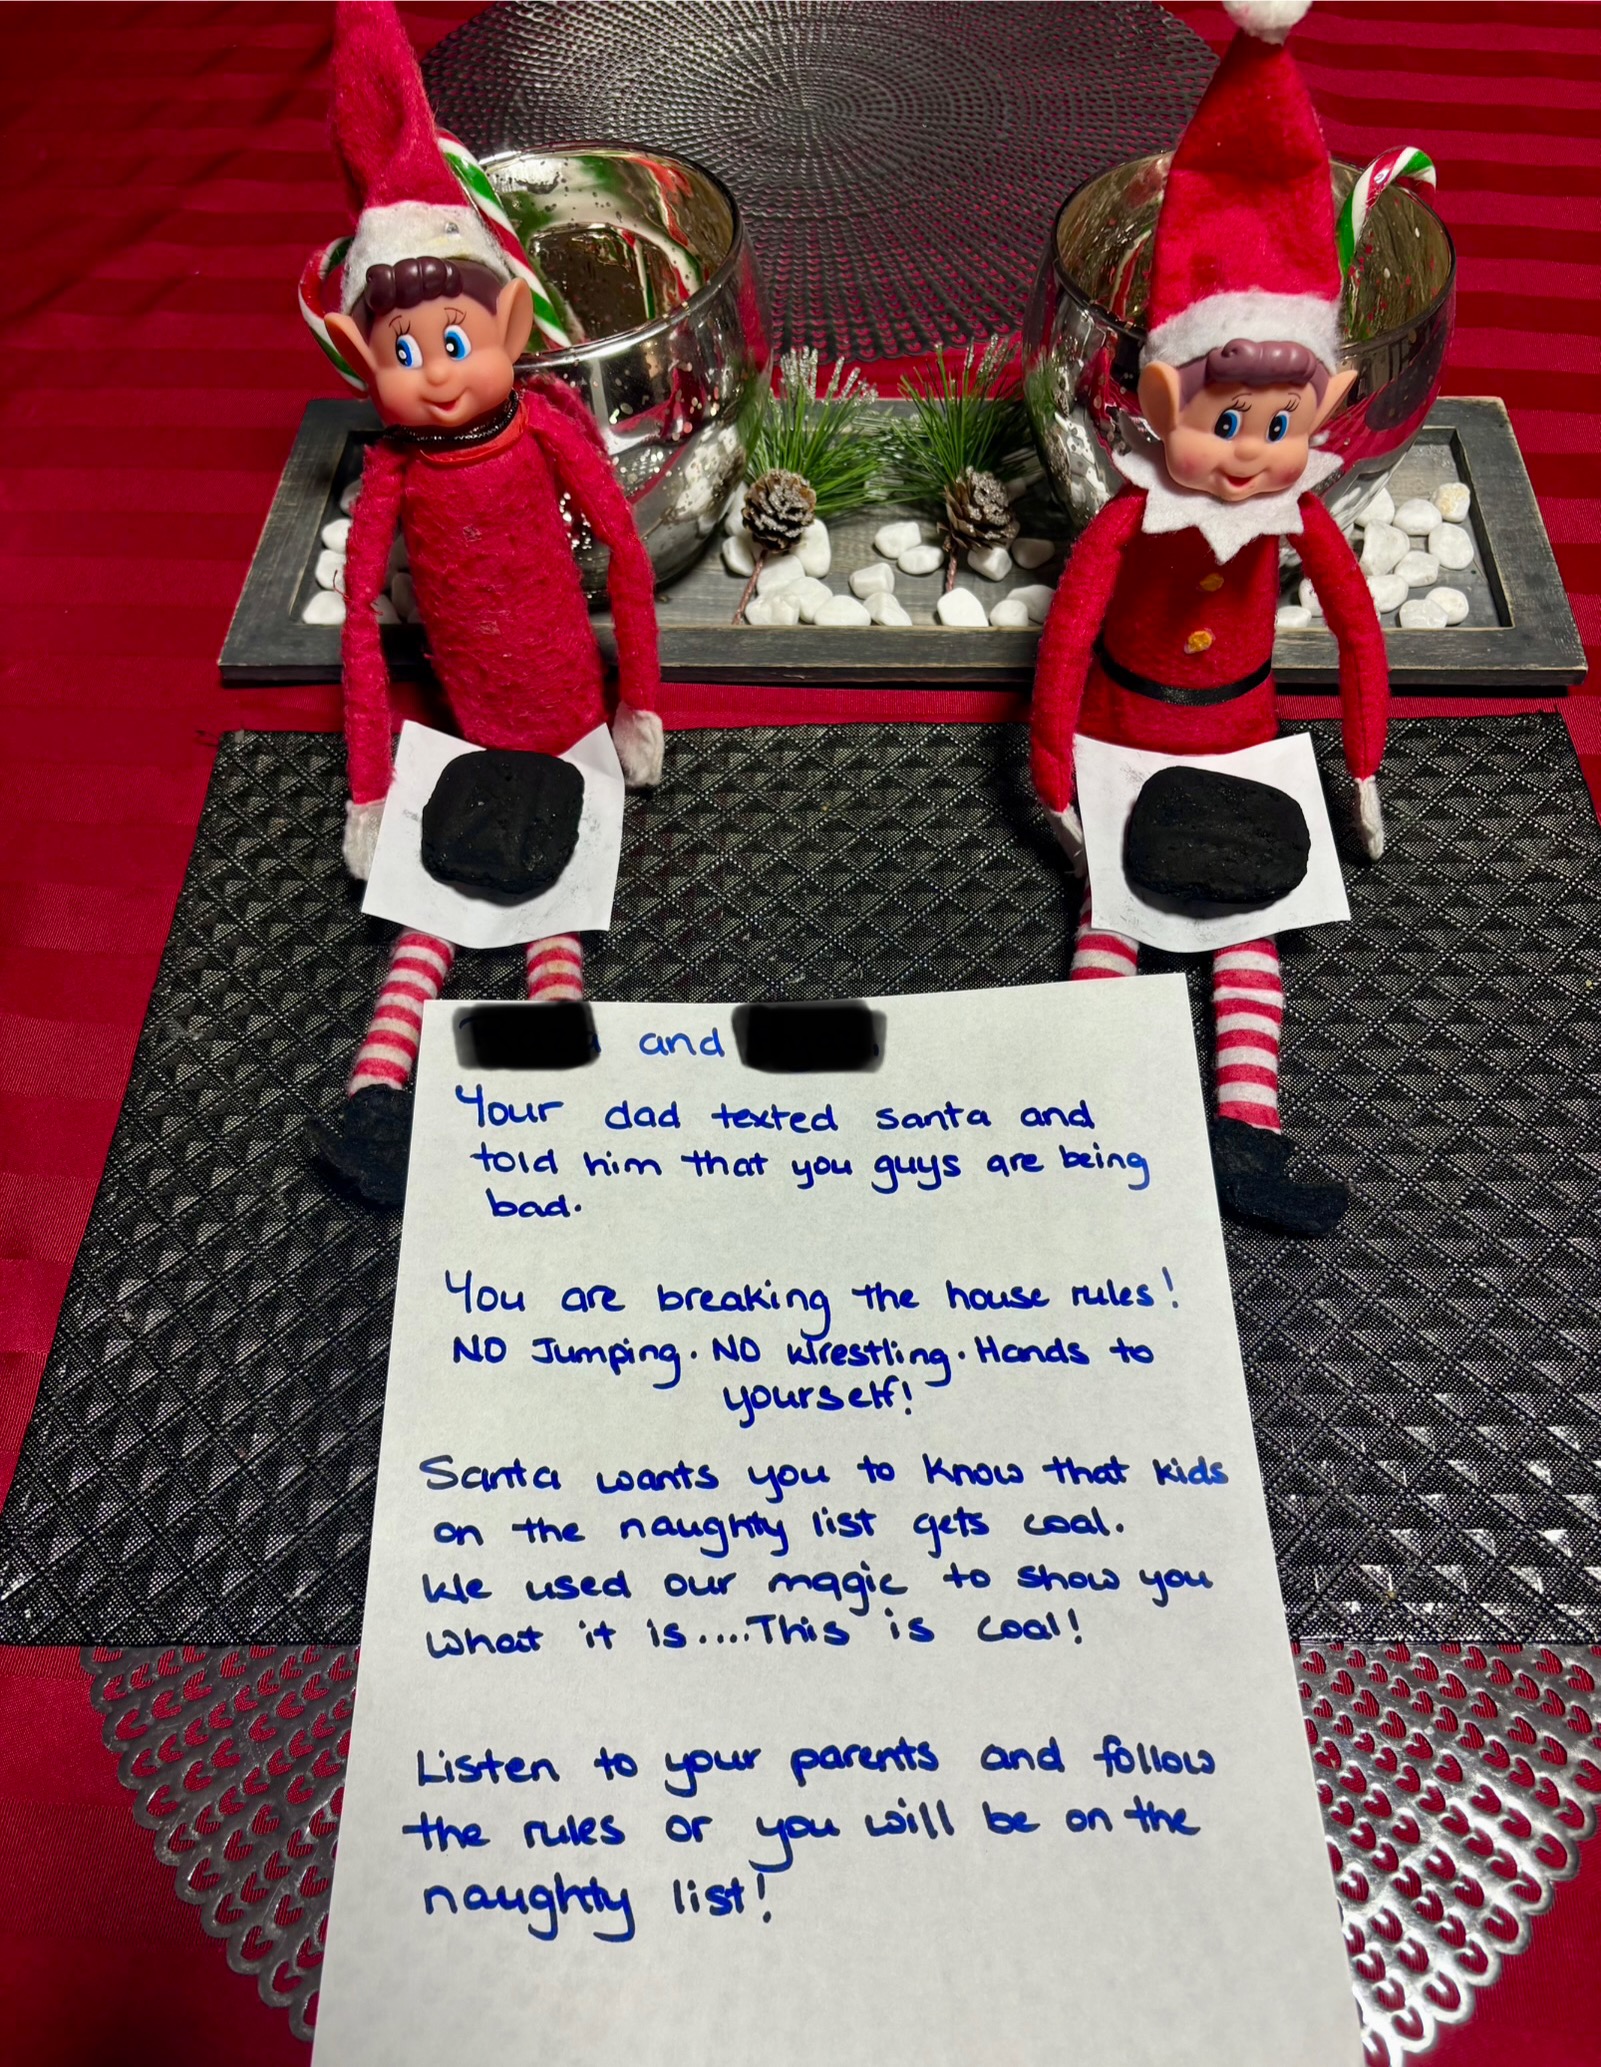 and
Your dad texted santa and
told him that you guys are being
bad.
You are breaking the house rules!
NO Jumping. NO wrestling. Hands to
yourself!
Santa wants you to know that kids
on the naughty list gets coal.
We used our magic to show you
what it is....This is coal!
Listen to your parents and follow
the rules or you will be on the
naughty list!